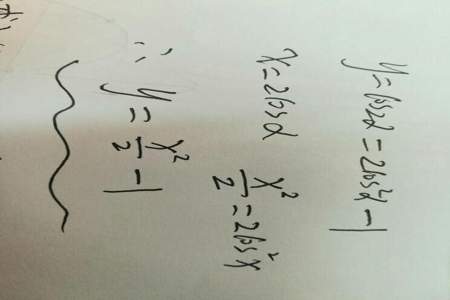 y=cos2α=2cos²α-1
x=2cosα  x²/2=2cos²x
∴ y=x²/2-1